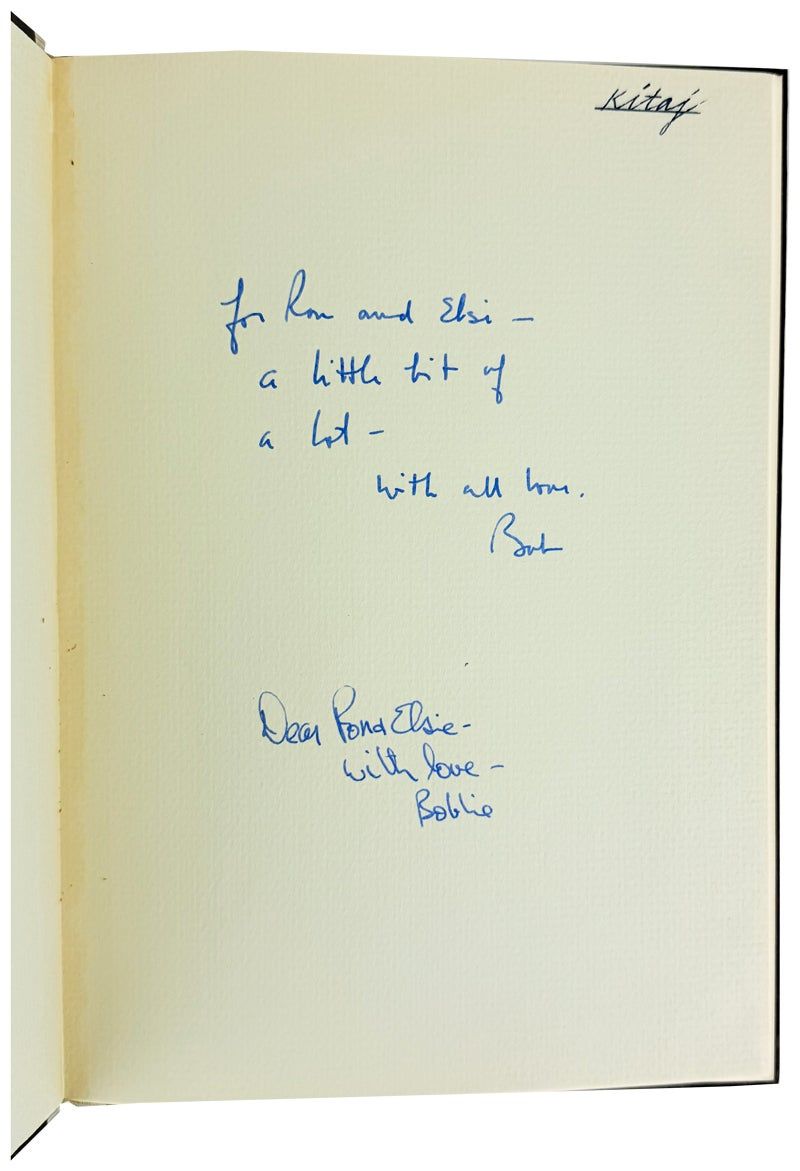 Kitaj
for Ron and Elsi —
a little bit of
a lot —
with all love.
Bob
Dear Ron & Elsie -
with love -
Bobbie